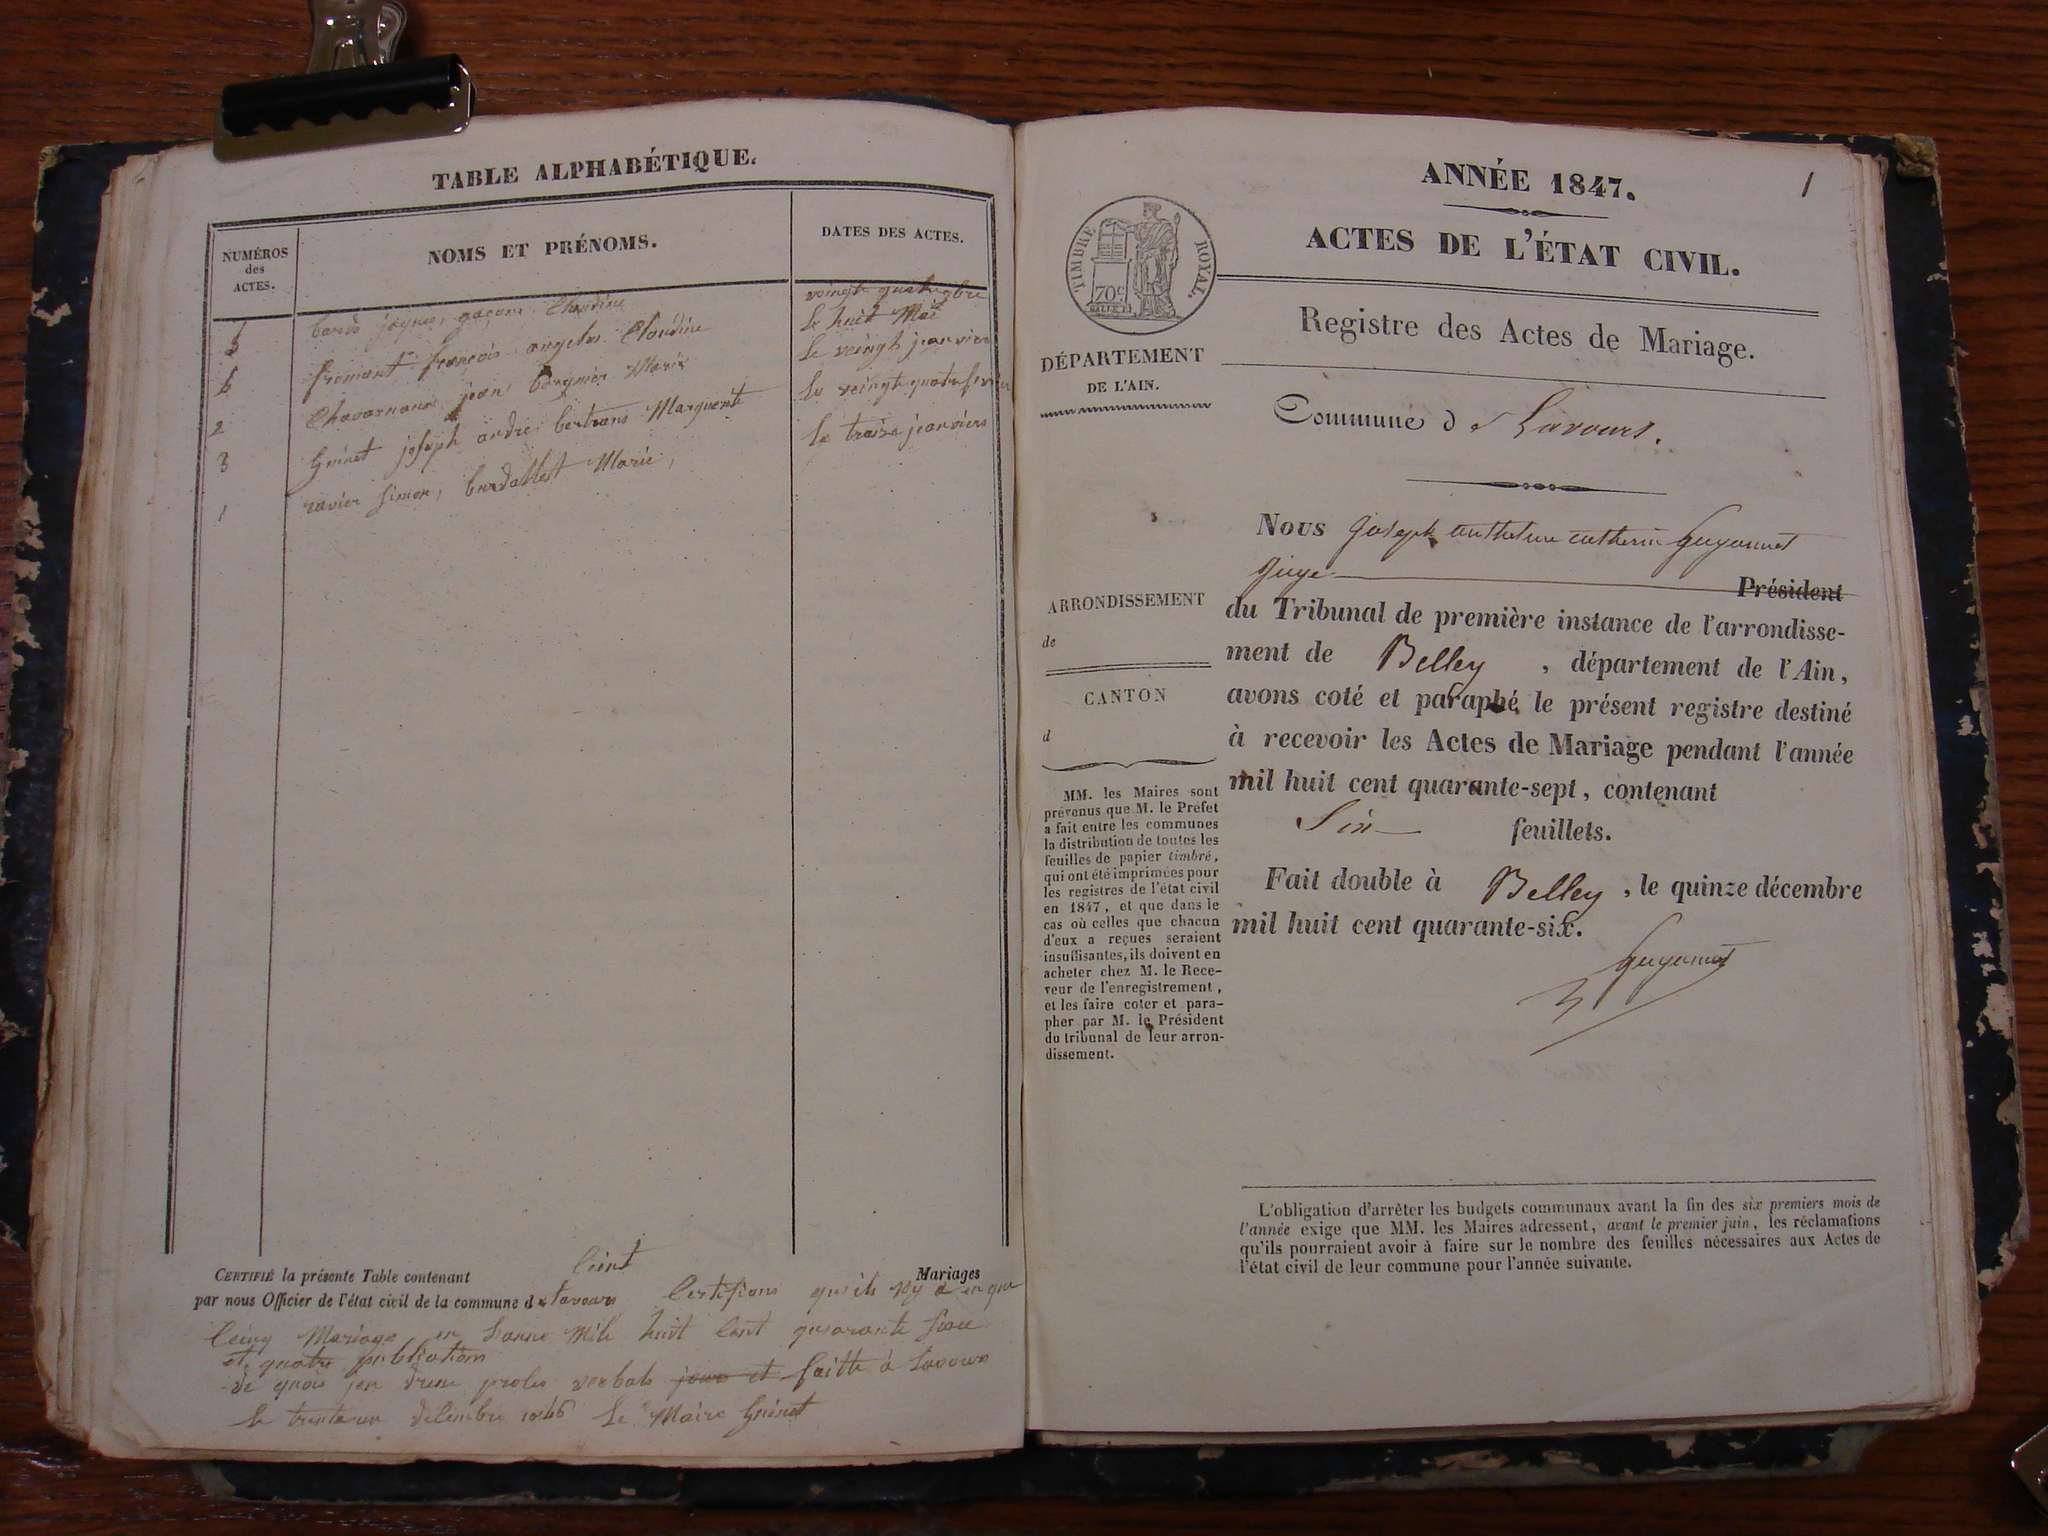 TABLE ALPHABÉTIQUE.
NUMÉROS
des
ACTES.
NOMS ET PRÉNOMS.
DATES DES ACTES.
5
Claudine
6
françois Claudine
le huit Mai
2
jean Marie
le veingt janvier
3
Guinet joseph andre bertrans Marguerite
le veingt quatre
1
ravier Simon, Marie,
le traize
CERTIFIÉ la présente Table contenant Mariages
par nous Officier de l'état civil de la commune de Lavours Certifions
Mariage huit cent quarante
et quatre publication
verbale jour et faitte à Lavours
le 1846 Le Maire Guinet
ANNÉE 1847.
1
ACTES DE L'ÉTAT CIVIL.
TIMBRE ROYAL.
70c
Registre des Actes de Mariage.
DÉPARTEMENT
DE L'AIN.
Commune de Lavours.
Nous Joseph anthelme Guyonnet
juge Président
ARRONDISSEMENT
de
CANTON
d
du Tribunal de première instance de l'arrondisse-
ment de Belley, département de l'Ain,
avons coté et paraphé le présent registre destiné
à recevoir les Actes de Mariage pendant l'année
mil huit cent quarante-sept, contenant
Six feuillets.
Fait double à Belley, le quinze décembre
mil huit cent quarante-six.
Guyonnet
MM. les Maires sont
prévenus que M. le Préfet
a fait entre les communes
la distribution de toutes les
feuilles de papier timbré,
qui ont été imprimées pour
les registres de l'état civil
en 1847, et que dans le
cas où celles que chacun
d'eux a reçues seraient
insuffisantes, ils doivent en
acheter chez M. le Rece-
veur de l'enregistrement,
et les faire coter et para-
pher par M. le Président
du tribunal de leur arron-
dissement.
L'obligation d'arrêter les budgets communaux avant la fin des six premiers mois de
l'année exige que MM. les Maires adressent, avant le premier juin, les réclamations
qu'ils pourraient avoir à faire sur le nombre des feuilles nécessaires aux Actes de
l'état civil de leur commune pour l'année suivante.